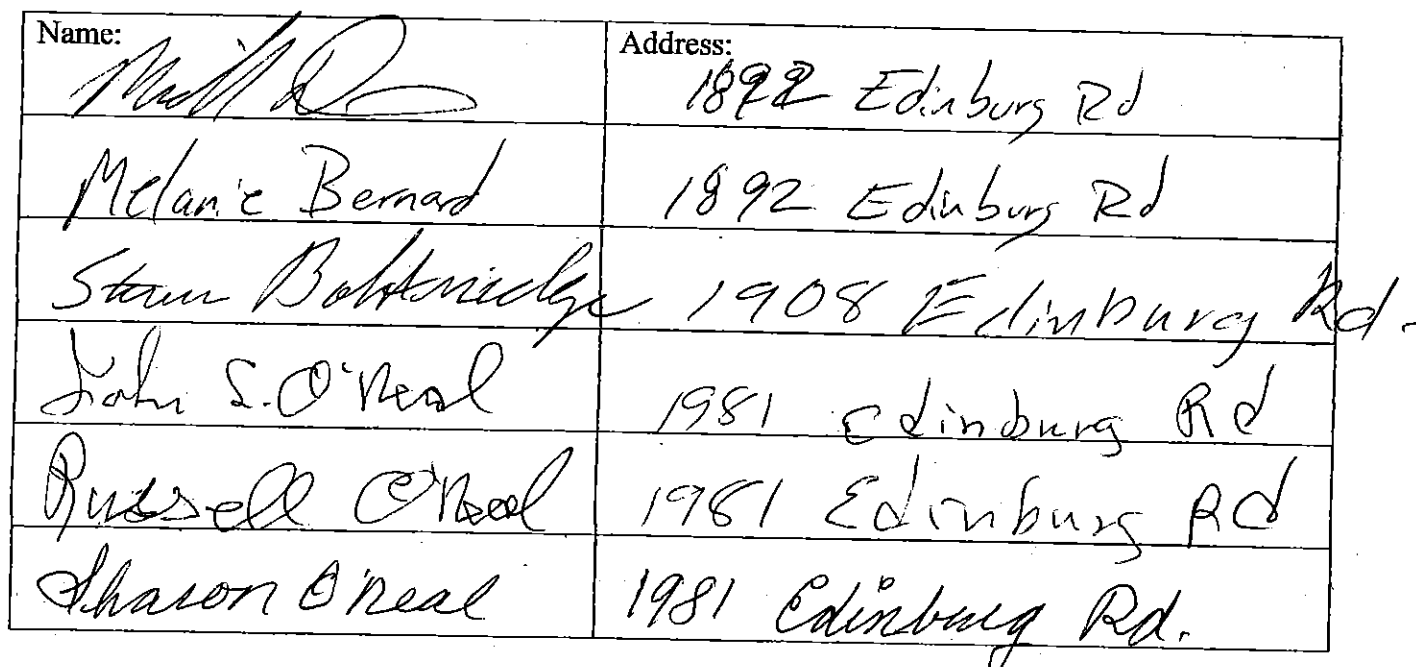 Name: Address:
1892 Edinburg Rd
Melanie Bernard 1892 Edinburg Rd
1908 Edinburg Rd.
John S. O'Neal 1981 Edinburg Rd
Russell O'Neal 1981 Edinburg Rd
Sharon O'Neal 1981 Edinburg Rd.